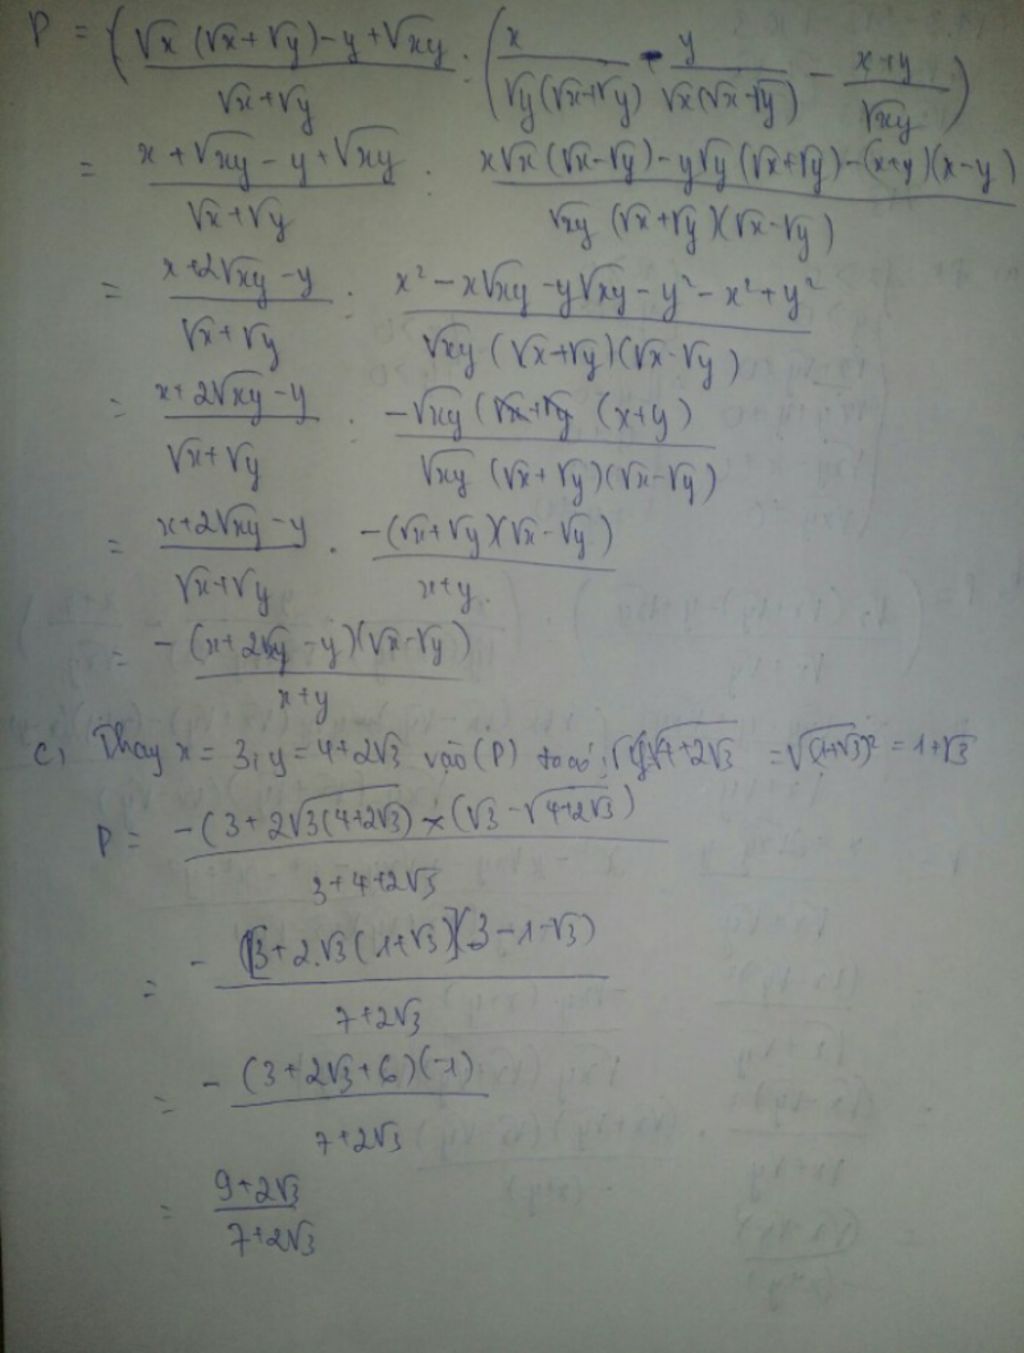 P = ( (√x (√x+√y) - y + √xy) / (√x+√y) : ( x / (√y(√x+√y)) - y / (√x(√x-√y)) - (x+y) / √xy )
= (x + √xy - y + √xy) / (√x+√y) : (x√x (√x-√y) - y√y (√x+√y) - (x+y)(x-y)) / (√xy (√x+√y)(√x-√y))
= (x+2√xy - y) / (√x+√y) : (x² - x√xy - y√xy - y² - x² + y²) / (√xy (√x+√y)(√x-√y))
= (x+2√xy - y) / (√x+√y) : (-√xy (x+y)) / (√xy (√x+√y)(√x-√y))
= (x+2√xy - y) / (√x+√y) . (-(√x+√y)(√x-√y)) / (x+y)
= (-(x+2√xy - y)(√x-√y)) / (x+y)
c, Thay x = 3, y = 4+2√3 vào (P) ta có: √4+2√3 = √(1+√3)² = 1+√3
P = (-(3+2√3(4+2√3) × (√3 - √4+2√3)) / (3+4+2√3)
= - ([3+2.√3(1+√3)](3-1-√3)) / (7+2√3)
= - ((3+2√3+6)(-1)) / (7+2√3)
= (9+2√3) / (7+2√3)